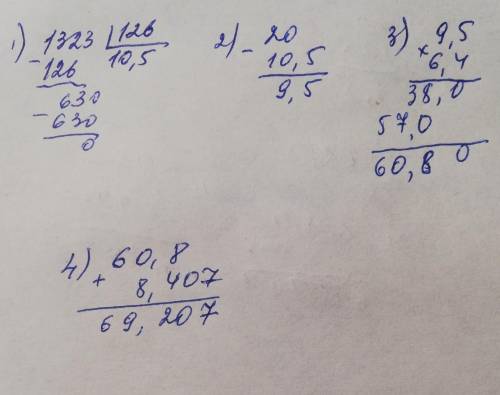 1) 1323 | 126
- 126 10,5
630
- 630
0
2) - 20
10,5
9,5
3) 9,5
× 6,4
38,0
57,0
60,80
4) 60,8
+ 8,407
69,207